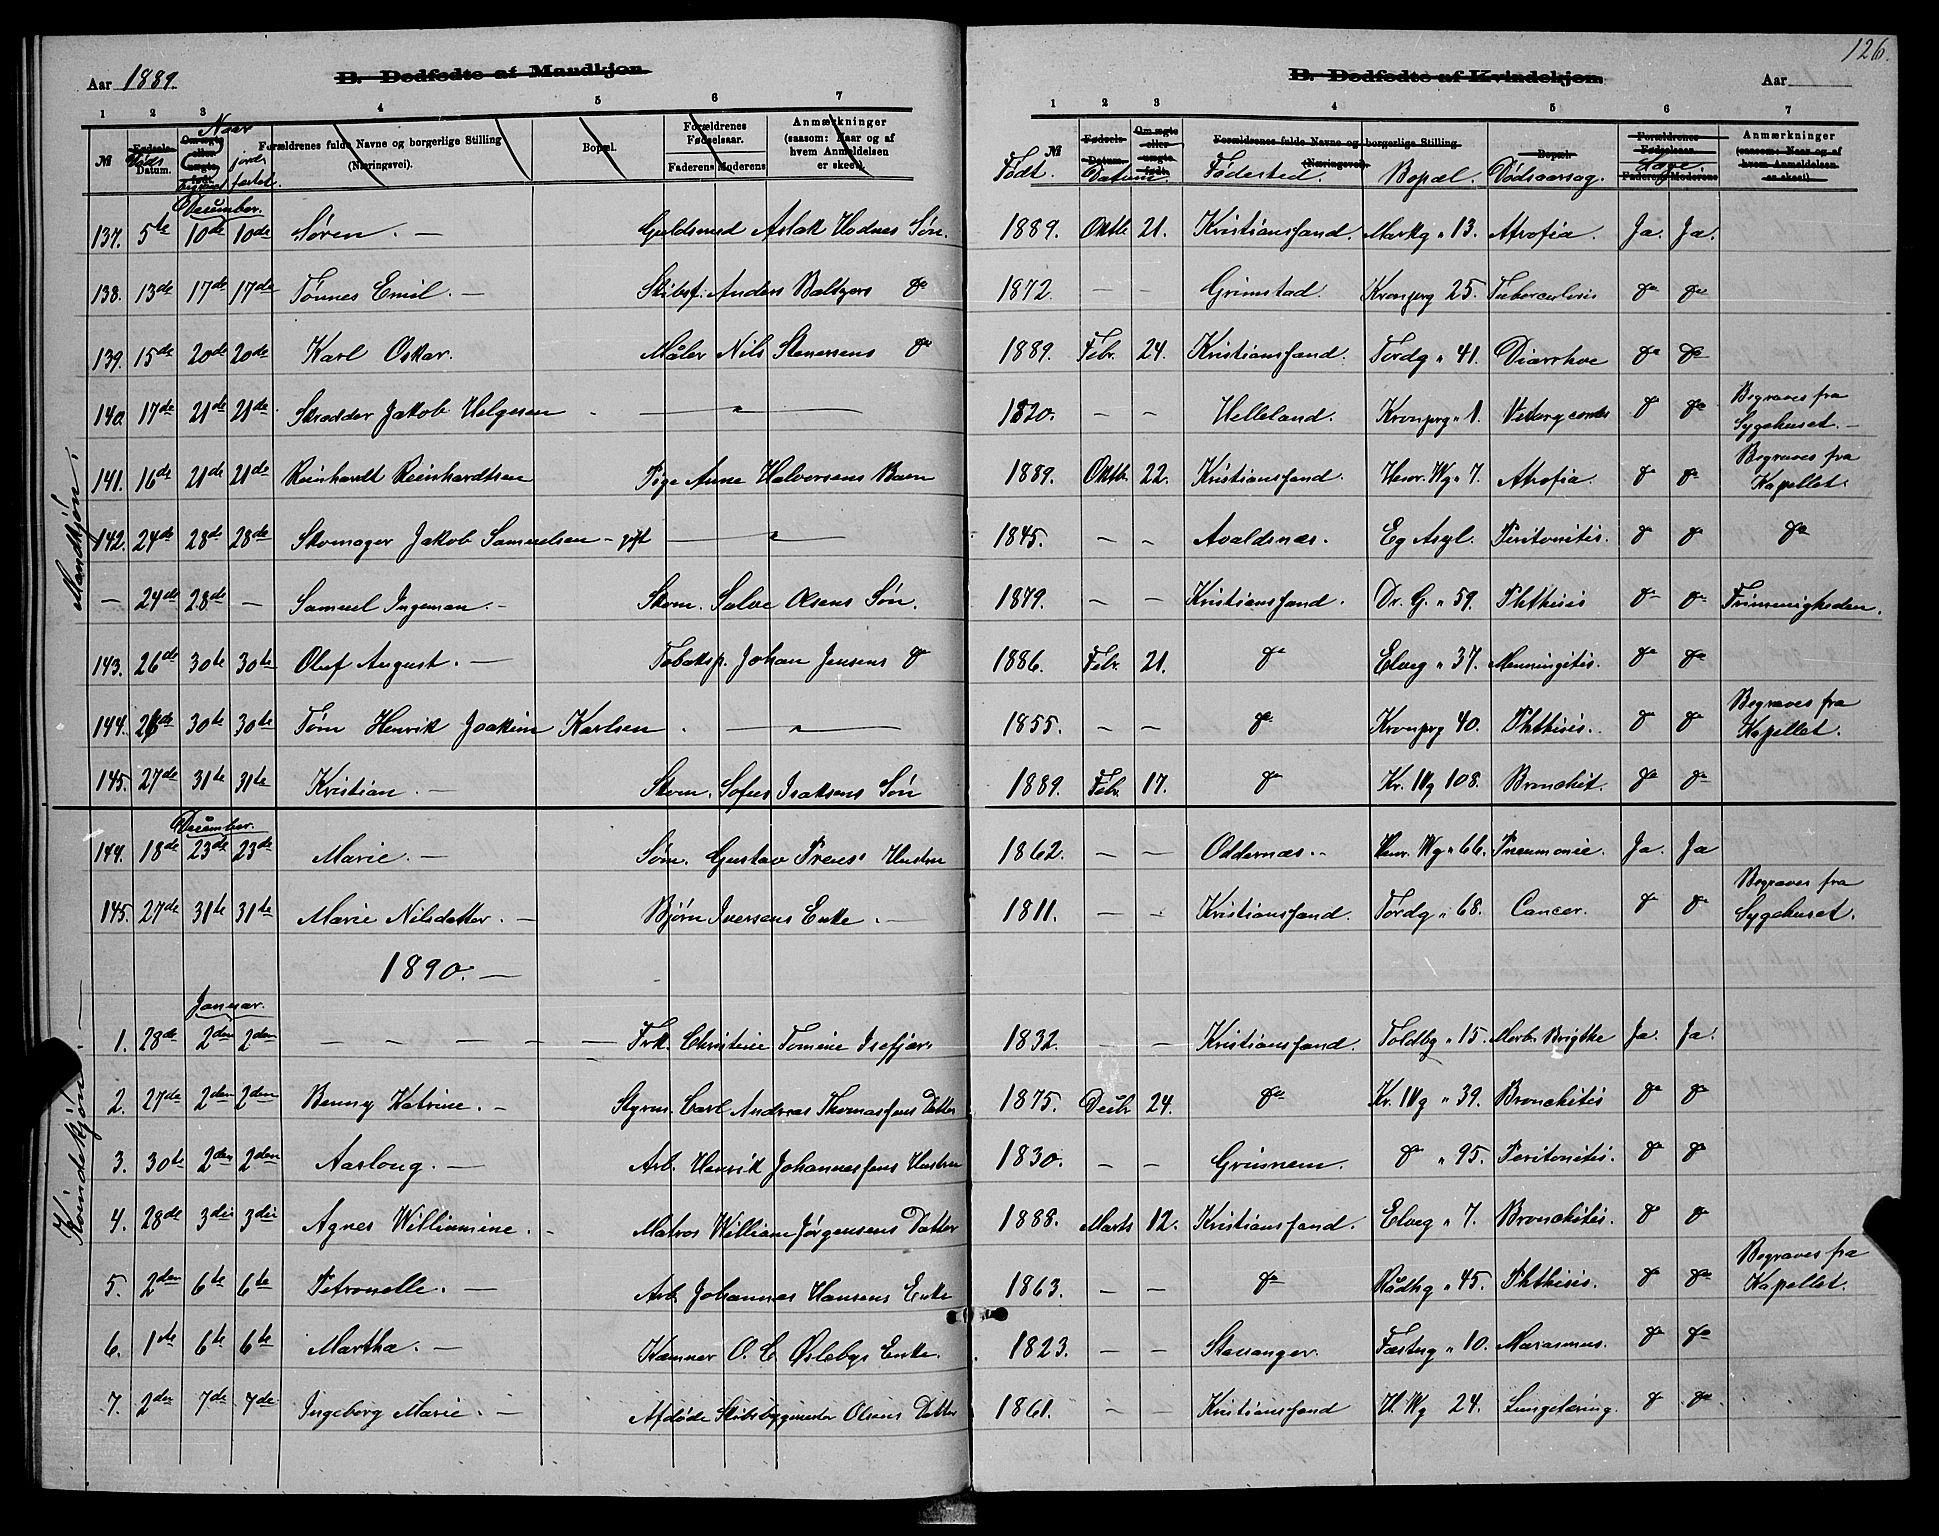 126.
Aar 1889. B. Dødfødte af Mandkjøn. B. Dødfødte af Kvindekjøn. Aar
1 2 3 4 5 6 7 1 2 3 4 5 6 7
№ Fødsels- Datum. Om ægte eller uægte født. Forældrenes fulde Navne og borgerlige Stilling (Næringsvei). Bopæl. Forældrenes Fødselsaar. Faderens Moderens Anmærkninger (saasom: Naar og af hvem Anmeldelsen er skeet).
Døds Naar begravet jordfæstet.
№ Fødsels- Datum. Om ægte eller uægte født. Forældrenes fulde Navne og borgerlige Stilling (Næringsvei). Bopæl. Forældrenes Fødselsaar. Faderens Moderens Anmærkninger (saasom: Naar og af hvem Anmeldelsen er skeet)
Født. Datum. Fødested. Bopæl. Dødsaarsag.
Mandkjøn.
December.
137. 5te 10de 10de Søren. — Guldsmed Aslak Hodnes Søn. 1889. Oktb 21. Kristianssand. Markg " 13. Atrofia. Ja. Ja.
138. 13de 17de 17de Tønnes Emil. — Skibsf. Anders Baltzers do 1872. — — Grimstad. Kronprg 25. Tuberculosis do do
139. 15de 20de 20de Karl Oskar. Maler Nils Stenersens do 1889. Febr. 24. Kristianssand. Tordg " 41. Diarrhoe do do
140. 17de 21de 21de Skrædder Jakob Helgesen — " — 1820. — — Helleland. Kronprg " 1. do do Begraves fra Sygehuset. —
141. 16de 21de 21de Reinhardt Reinhardtsen Pige Anne Halvorsens Barn 1889. Oktb. 22. Kristianssand. Henr. Wg " 7. Atrofia. do do Begraves fra Kapellet.
142. 24de 28de 28de Skomager Jakob Samuelsen — gift — " — 1845. — — Avaldsnæs. Eg Asyl. Peritonitis. do do do
— 24de 28de — Samuel Ingeman. — Skom. Salve Olsens Søn. 1879. — — Kristianssand. Dr. G. " 59. Phthisis do do Frimenigheden.
143. 26de 30te 30te Oluf August. — Tobaksp. Johan Jensens do 1886. Febr. 21. do Elveg " 37. Menningitis. do do
144. 26de 30te 30te Tøm Henrik Joakim Karlsen . — " — 1855. — — do Kronprg 40. Phthisis. do do Begraves fra Kapellet.
145. 27de 31te 31te Kristian. — Skom. Sofus Isaksens Søn 1889. Febr. 17. do Kr. IVg 108. Bronchit. do do
Kvindekjøn. —
December.
144. 18de 23de 23de Marie. — Søm. Gustav Preus' Hustru 1862. — — Oddernæs. Henr. Wg " 66. Pneumonie. Ja. Ja
145. 27de 31te 31te Marie Nilsdatter. — Bjørn Iversens Enke. — 1811. — — Kristianssand. Tordg " 68. Cancer. do do Begraves fra Sygehuset.
1890. —
Januar.
1. 28de 2den 2den — — — — — Frk. Christine Tomine Isefjær. 1832. — — Kristianssand. Toldbg " 15. Morb. Brigthe Ja. Ja.
2. 27de 2den 2den Benny Katrine. — Styrm. Carl Andreas Thomassens Datter 1875. Decbr 24. do Kr. IVg " 39. Bronchitis do do
3. 30te 2den 2den Aasloug. — Arb. Henrik Johannessens Hustru 1830. — — do " 95. Peritonitis. do do
4. 28de 3die 3die Agnes Williamine. — Matros William Jørgensens Datter 1888. Marts 12. Kristianssand. Elveg " 7. Bronchitis. do do
5. 2den 6te 6te Petronelle. — Arb. Johannes Hansens Enke 1863. — — do Rådhg " 45. Phthisis. do do Begraves fra Kapellet.
6. 1ste 6te 6te Martha. — Kæmner O. C. Øslebys Enke. 1823. — — Stavanger. Fæstng " 10. Marasmus. do do
7. 2den 7de 7de Ingeborg Marie. — Afdøde Skibsbygmester Olsens Datter 1861. — — Kristianssand H. Wg 24. Lungetæring. do do